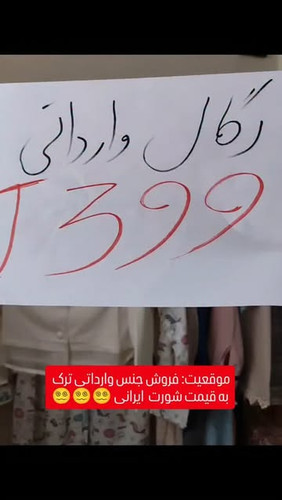 رگال وارداتی
399 T
موقعیت: فروش جنس وارداتی ترک
به قیمت شورت ایرانی 😵‍💫😵‍💫😵‍💫